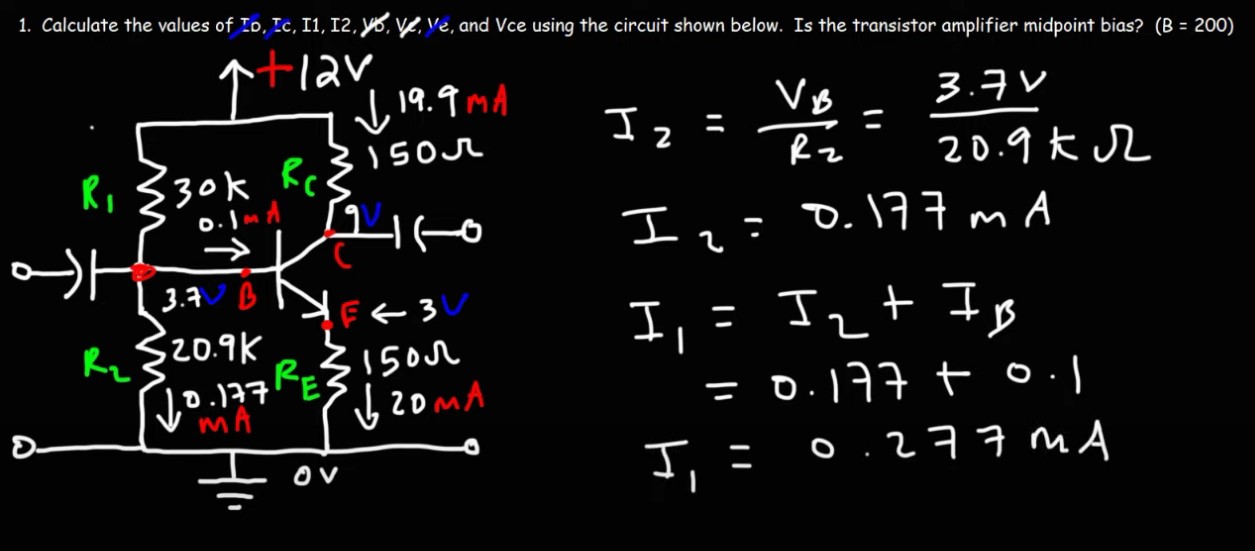 1. Calculate the values of Ib, Ic, I1, I2, Vb, Vc, Ve, and Vce using the circuit shown below. Is the transistor amplifier midpoint bias? (B = 200)
+12V
19.9 mA
150Ω
R1
30k
RC
0.1 mA
9V
C
3.7V
B
E ← 3V
R2
20.9K
RE
150Ω
0.177
mA
20 mA
0V
I2 = VB / R2 = 3.7V / 20.9 kΩ
I2 = 0.177 mA
I1 = I2 + IB
= 0.177 + 0.1
I1 = 0.277 mA